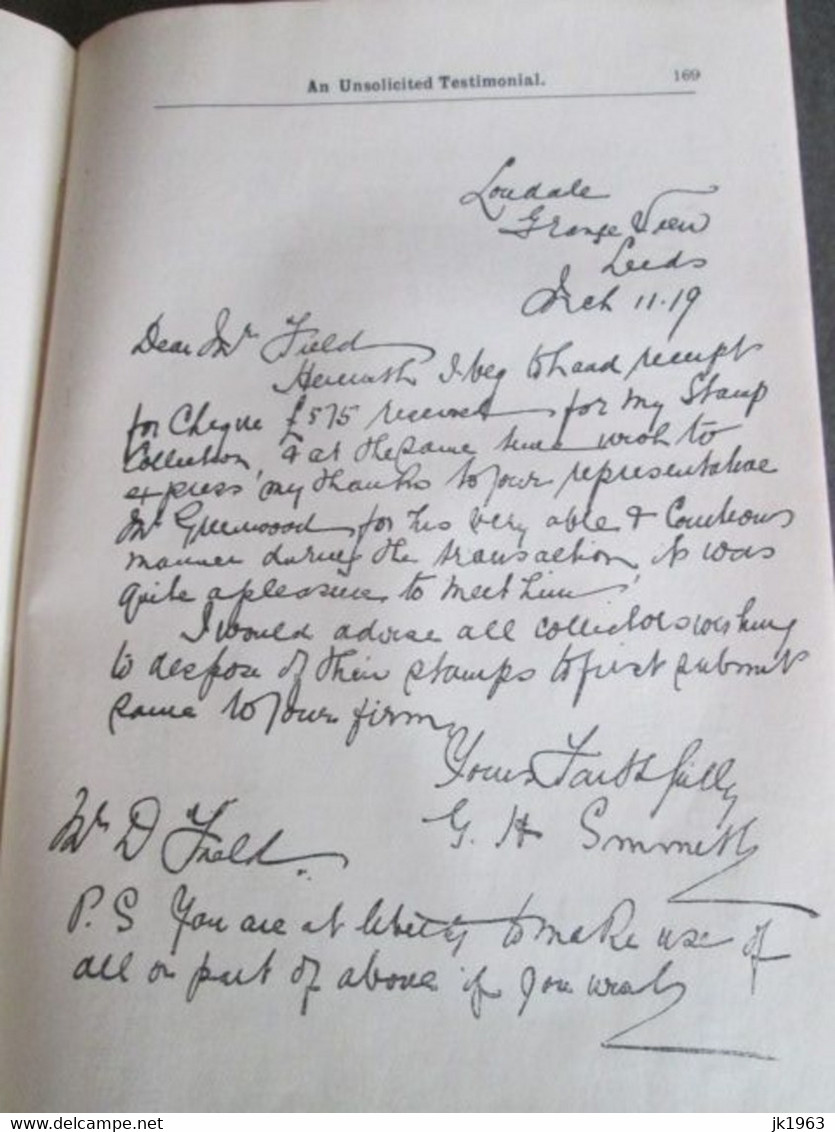 An Unsolicited Testimonial. 169
Grange View
Leeds
Mch 11.19
Dear Mr Field
Herewith I beg to hand receipt
for Cheque £575 received for my Stamp
Collection, & at the same time wish to
express my thanks to your representative
Mr Greenwood for his very able & Courteous
manner during the transaction, it was
quite a pleasure to meet him.
I would advise all collectors wishing
to dispose of their stamps to first submit
same to your firm
Yours Faithfully
G. H
Mr D Field.
P.S You are at liberty to make use of
all or part of above if you wish
delcampe.net
jk1963